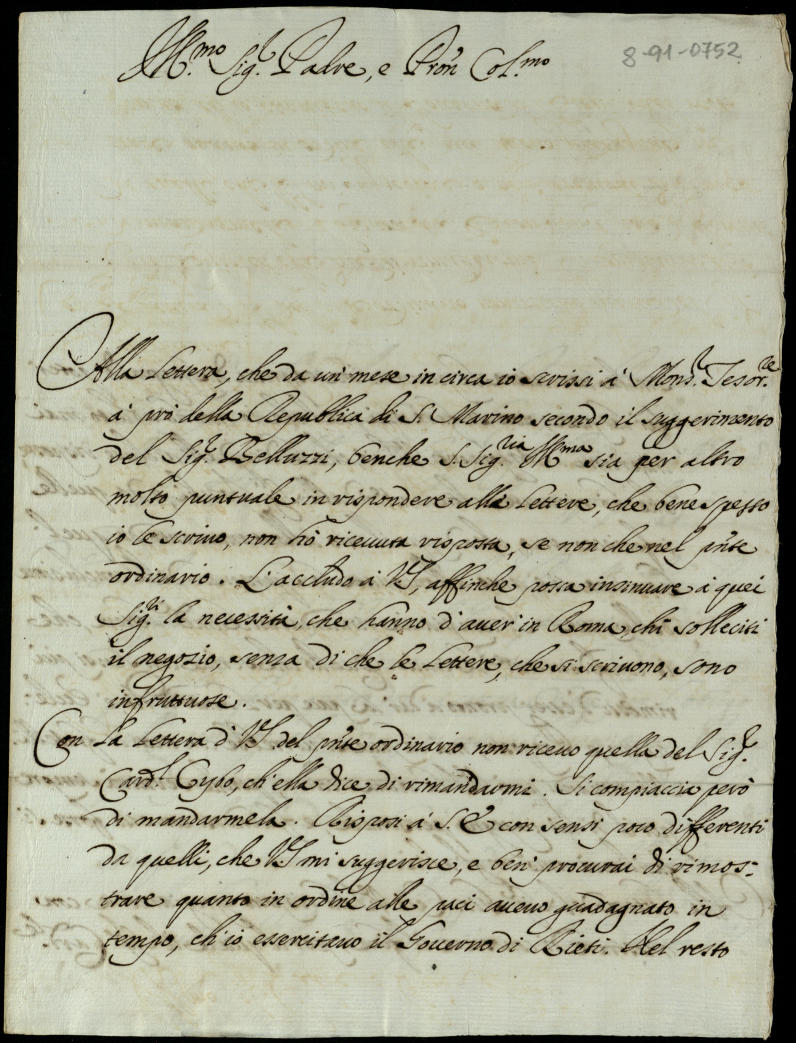 Ill.mo Sig.r Padre, e Pron Col.mo
8-91-0752
Alla Lettera, che da un' mese in circa io scrissi à Mons.r Tesor.re
à prò della Republica di S. Marino secondo il suggerimento
del Sig.r Belluzzi, benche S. Sig.ria Ill.ma sia per altro
molto puntuale in rispondere alle Lettere, che bene spesso
io le scrivo, non hò ricevuta risposta, se non che nel pnte
ordinario. L'accludo à VS, affinche possa insinuare à quei
Sig.ri la necessità, che hanno d'aver' in Roma, chi solleciti
il negozio, senza di che le Lettere, che si scrivono, sono
infruttuose.
Con la Lettera di VS del pnte ordinario non ricevo quella del Sig.r
Card.l Cybo, ch'ella dice di rimandarmi. Si compiaccia però
di mandarmela. Risposi à S. E. con sensi poco differenti
da quelli, che VS mi suggerisce, e ben' procurai di rimos-
trare quanto in ordine alle paci avevo guadagnato in
tempo, ch'io esercitavo il Governo di Rieti. Nel resto